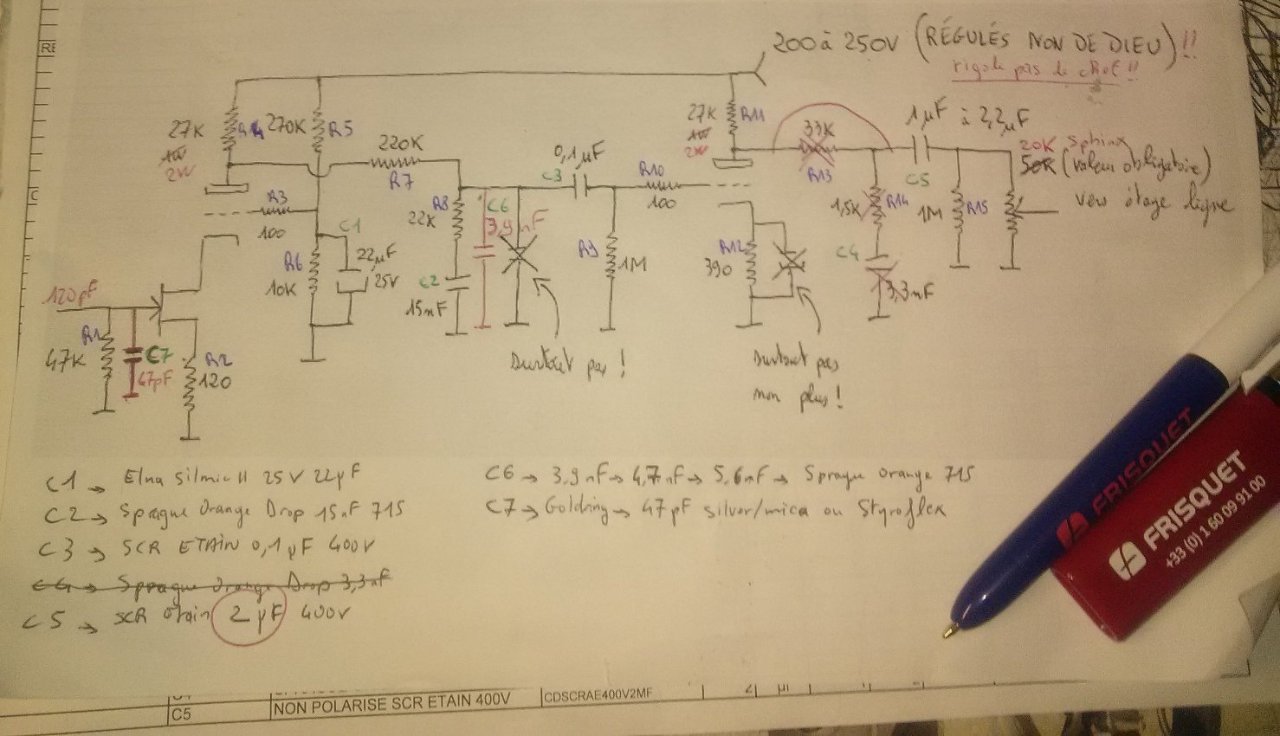 200 à 250V (RÉGULÉS NON DE DIEU)!!
rigole pas le chef!!
27K
R4
270K
R5
27K
R11
33K
1µF à 2,2µF
1W
2W
220K
R7
0,1µF
C3
R10
100
1W
2W
R13
C5
20K sphinx
50K (valeur obligatoire)
vers étage ligne
R3
100
R8
22K
C6
3,9nF
1,5K
R14
1M
R15
C1
22µF
25V
R6
10K
C2
15nF
R9
1M
R12
390
C4
3,3nF
120pF
R1
47K
C7
47pF
R2
120
Surtout pas !
Surtout pas
non plus !
C1 → Elna Silmic II 25V 22µF
C2 → Sprague Orange Drop 15nF 715
C3 → SCR ETAIN 0,1µF 400V
C4 → Sprague Orange Drop 3,3nF
C5 → SCR étain 2µF 400V
C6 → 3,9nF → 4,7nF → 5,6nF → Sprague Orange 715
C7 → Goldring → 47pF silver/mica ou Styroflex
FRISQUET
FRISQUET
+33 (0) 1 60 09 91 00
C5
NON POLARISE SCR ETAIN 400V
CDSCRAE400V2MF